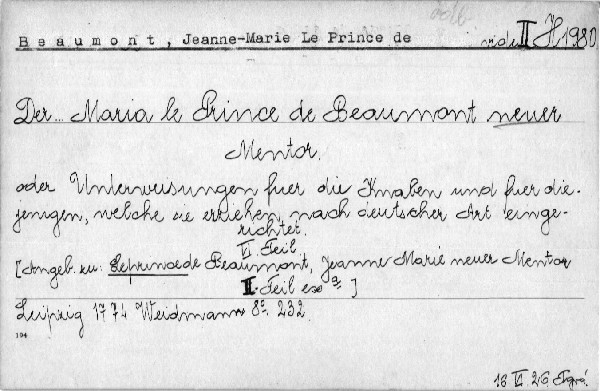 Beaumont, Jeanne-Marie Le Prince de vide II H 1980
Der... Maria le Prince de Beaumont neuer
Mentor.
oder Unterweisungen fuer die Knaben und fuer die-
jenigen, welche sie erziehen, nach deutscher Art einge-
richtet.
VI. Teil
[Angeb. zu: Leprince de Beaumont, Jeanne Marie neuer Mentor
II. Teil ex a]
Leipzig 1774 Weidmann 8° 232.
194
16 VI 26